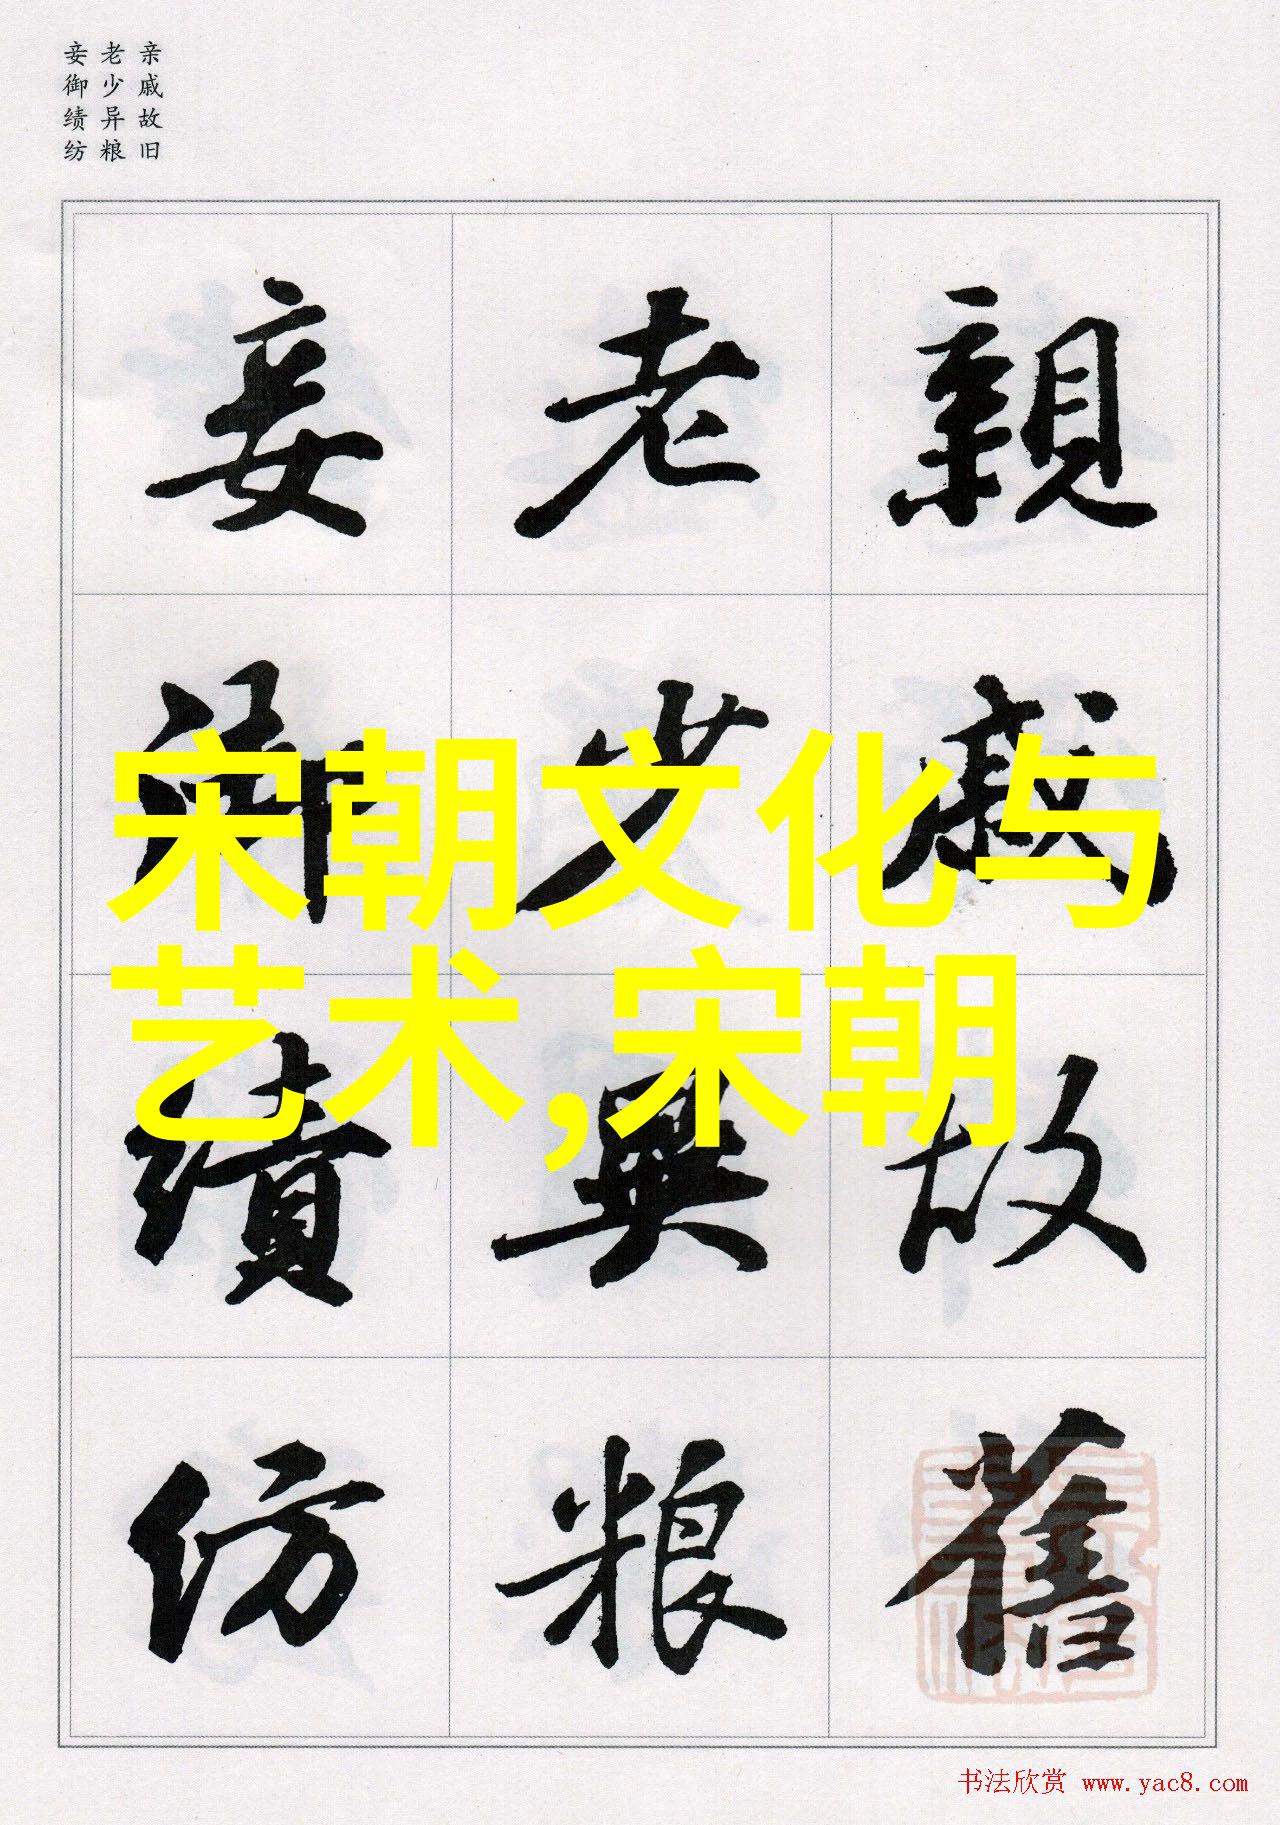 亲戚故旧
老少异粮
妾御绩纺
親戚故舊
老少異粮
妾御績紡
宋朝文化与
艺术,宋朝
书法欣赏 www.yac8.com